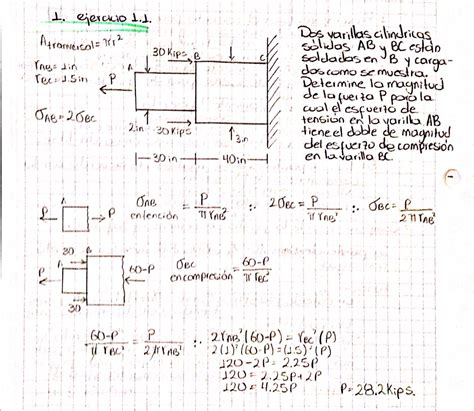 1. ejercicio 1.1.
Atranversal = πr²
r_AB = 1in
r_BC = 1.5in
σ_AB = 2σ_BC
P
A
30 Kips
B
C
2in
30 Kips
3in
30in
40in
Dos varillas cilindricas
sólidas AB y BC están
soldadas en B y carga-
das como se muestra.
Determine la magnitud
de la fuerza P para la
cual el esfuerzo de
tensión en la varilla AB
tiene el doble de magnitud
del esfuerzo de compresión
en la varilla BC
P
A
P
σ_AB en tención = P / π r_AB² ∴ 2σ_BC = P / π r_AB² ∴ σ_BC = P / 2π r_AB²
30
B
A
P
60-P
30
σ_BC en compresión = 60-P / π r_BC²
60-P / π r_BC² = P / 2π r_AB² ∴ 2r_AB²(60-P) = r_BC²(P)
2(1)²(60-P) = (1.5)²(P)
120-2P = 2.25P
120 = 2.25P+2P
120 = 4.25P
P= 28.2 Kips.